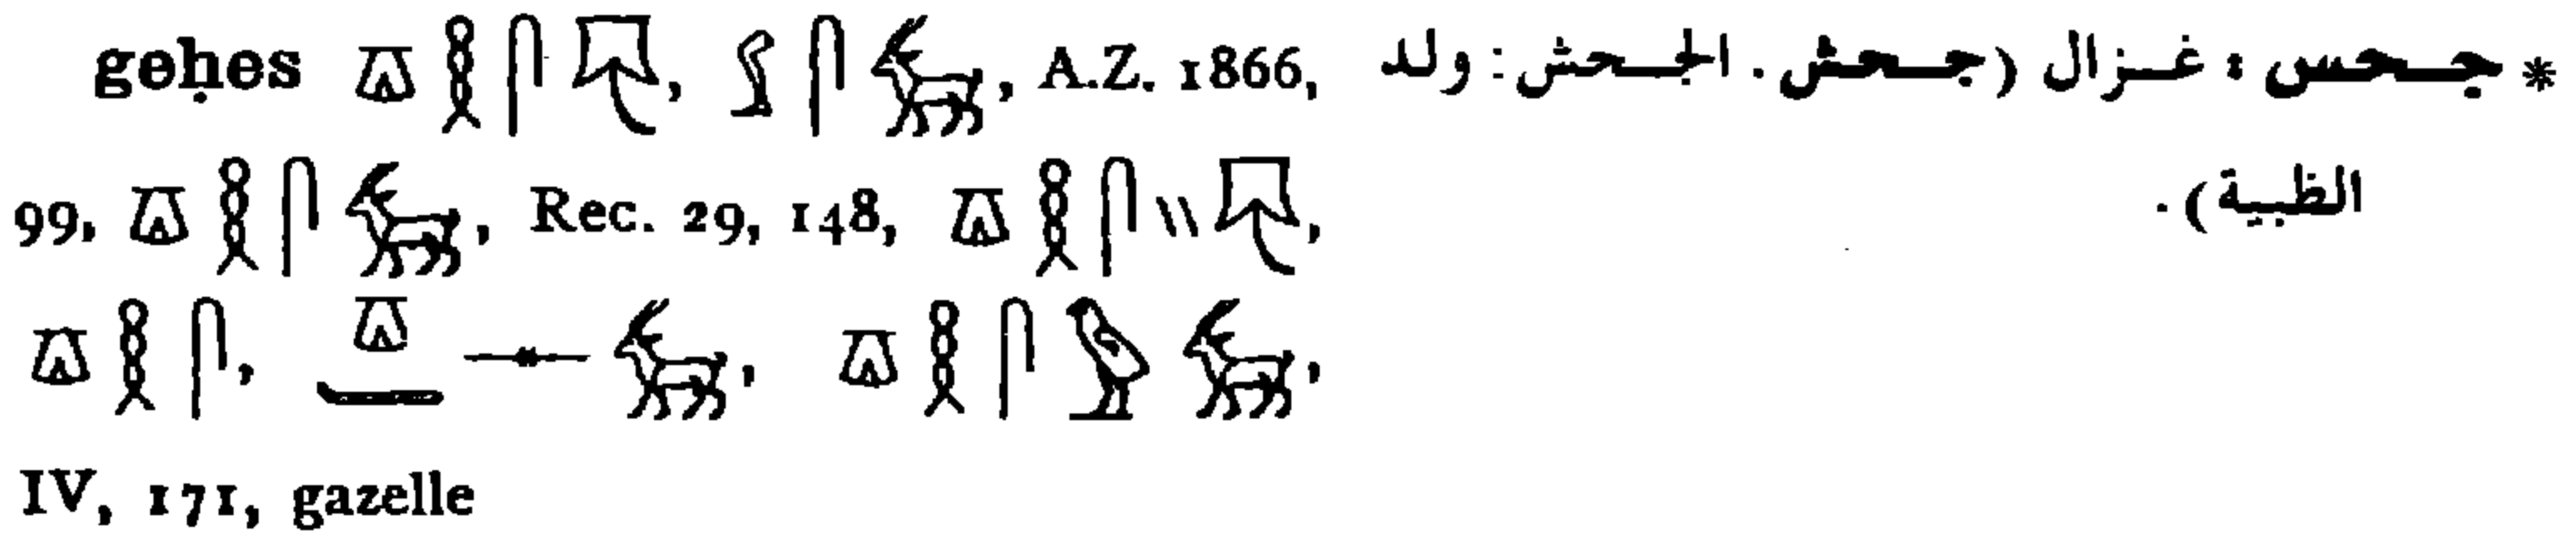 geḥes 𓎼 𓎛 𓋴 𓄛, 𓋴 𓃴, A.Z. 1866,
99, 𓎼 𓎛 𓋴 𓃴, Rec. 29, 148, 𓎼 𓎛 𓋴 \\ 𓄛,
𓎼 𓎛 𓋴, 𓎼 𓊃 𓃴, 𓎼 𓎛 𓋴 𓅱 𓃴,
IV, 171, gazelle
* جـحـس : غـزال (جـحـش . الجـحش : ولد
الظبية) .